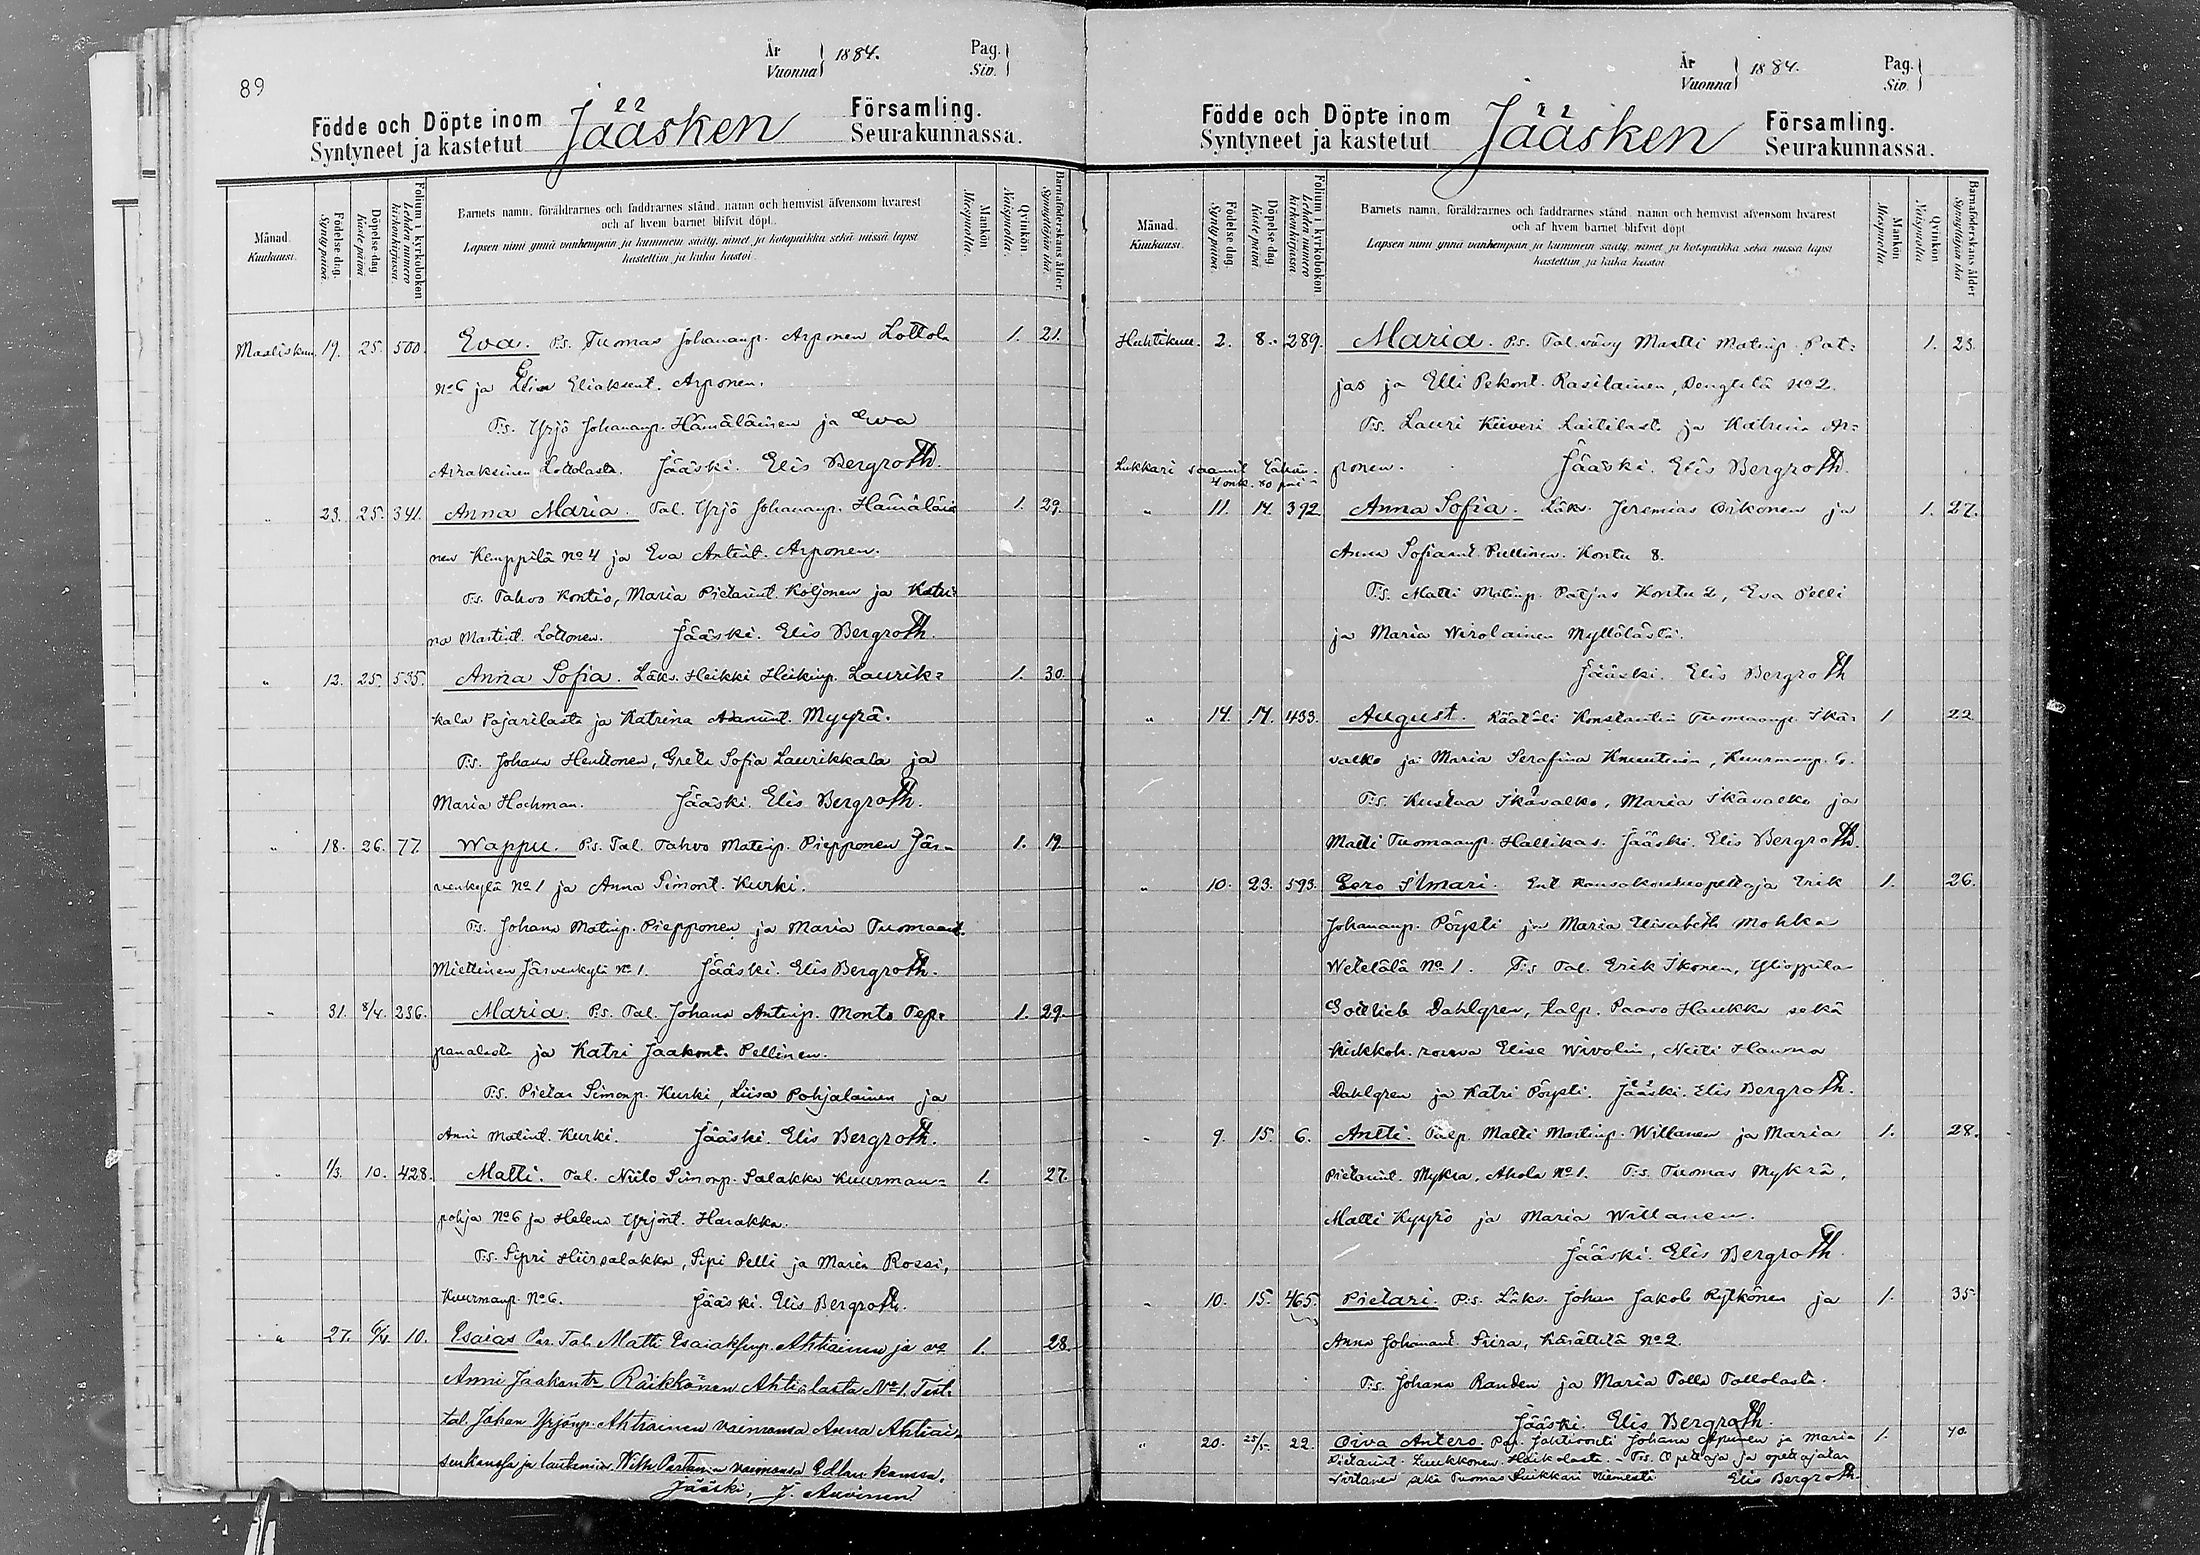 89
År Vuonna } 1884. Pag. Siv. }
Födde och Döpte inom Syntyneet ja kastetut Jääsken Församling. Seurakunnassa.
Månad. Kuukausi.
Födelse-dag. Syntypäivä.
Döpelse-dag. Kastepäivä.
Folium i kyrkoboken Lehden numero kirkonkirjassa.
Barnets namn, föräldrarnes och faddrarnes stånd, namn och hemvist äfvensom hvarest
och af hvem barnet blifvit döpt.
Lapsen nimi ynnä vanhempain ja kummein sääty, nimet ja kotopaikka sekä missä lapsi
kastettiin ja kuka kastoi.
Mankön. Miespuolta.
Qvinkön. Naispuolta.
Barnaföderskans ålder. Synnyttäjän ikä.
Maaliskuu. 19. 25. 500. Eva. P:s. Tuomas Johananp. Arponen Lottola 1. 21.
No 6 ja Eliaksent. Arponen.
T:s. Yrjö Johananp. Hämäläinen ja Eva
Lottolasta. Jääski. Elis Bergroth.
" 23. 25. 341. Anna Maria. Tal. Yrjö Johananp. Hämäläi= 1. 29.
nen Kemppilä No 4 ja Eva Antint. Arponen.
T:s. Tahvo Kontio, Maria Pietarint. Koljonen ja Katri=
na Martint. Lottonen. Jääski. Elis Bergroth.
" 12. 25. 535. Anna Sofia. Läks. Heikki Heikinp. Laurik= 1. 30.
kala Pajarilasta ja Katrina Adamint. Myyrä.
T:s. Johana Henttonen, Greta Sofia Laurikkala ja
Maria Hochman. Jääski. Elis Bergroth.
" 18. 26. 77. Wappu. P:s. Tal. Tahvo Matinp. Piepponen Jär= 1. 19.
venkylä No 1 ja Anna Simont. Kurki.
T:s. Johana Matinp. Piepponen ja Maria Tuomaant.
Miettinen Järvenkylä No 1. Jääski. Elis Bergroth.
" 31. 8/4. 236. Maria. P:s. Tal. Johana Antinp. Monto Tep= 1. 29.
panalasta ja Katri Jaakont. Pellinen.
T:s. Pietar Simonp. Kurki, Liisa Pohjalainen ja
Anni Matint. Kurki. Jääski. Elis Bergroth.
" 1/3. 10. 428. Matti. Tal. Niilo Simonp. Salakka Kuurman= 1. 27.
pohja No 6 ja Helena Yrjönt. Harakka.
T:s. Sipri Hiirsalakka, Sipi Pelli ja Maria Rossi,
Kuurmanp. No 6. Jääski. Elis Bergroth.
" 27. 6/4. 10. Esaias Par. Tal. Matti Esaiaksenp. Ahtiainen ja vo 1. 28.
Anni Jaakontr. Räikkönen Ahtialasta No 1. Tist.
tal. Johan Yrjönp. Ahtiainen vaimonsa Anna Ahtiai=
sen kanssa ja Wilh. Partanen vaimonsa Edlan kanssa.
Jääski, J. Auvinen.
År Vuonna } 1884. Pag. Siv. }
Födde och Döpte inom Syntyneet ja kastetut Jääsken Församling. Seurakunnassa.
Månad. Kuukausi.
Födelse-dag. Syntypäivä.
Döpelse-dag. Kastepäivä.
Folium i kyrkoboken Lehden numero kirkonkirjassa.
Barnets namn, föräldrarnes och faddrarnes stånd, namn och hemvist äfvensom hvarest
och af hvem barnet blifvit döpt.
Lapsen nimi ynnä vanhempain ja kummein sääty, nimet ja kotopaikka sekä missä lapsi
kastettiin ja kuka kastoi.
Mankön Miespuolta
Qvinkön. Naispuolta.
Barnaföderskans ålder Synnyttäjän ikä
Huhtikuu. 2. 8. 289. Maria. P:s. Tal. vävy Martti Matinp. Pat= 1. 23.
jas ja Elli Pekont. Rasilainen, No 2.
T:s. Lauri Kiiveri Laitilasta ja Katrina Ar=
Lukkari saanut ponen. Jääski. Elis Bergroth.
" 11. 14. 392. Anna Sofia. Läks. Jeremias Oikonen ja 1. 27.
Anna Sofia Pullinen. Kontu 8.
T:s. Matti Matinp. Patjas Kontu 2, Eva Pelli
ja Maria Wirolainen Myllölästä.
Jääski. Elis Bergroth
" 14. 14. 433. August. Räätäli Konstantin Tuomaanp. Ikä= 1 22
valko ja Maria Serafina Knuutinen, Kuurmanp. 6.
T:s. Kustaa Ikävalko, Maria Ikävalko ja
Matti Tuomaanp. Hallikas. Jääski. Elis Bergroth.
" 10. 23. 593. Eero Ilmari. Ent. Kansakoulunopettaja Erik 1. 26.
Johananp. Pöysti ja Maria Elisabeth Mohka
Wetelälä No 1. T:s Tal. Erik Ikonen, Ylioppilas
Gottlieb Dahlgren, talp. Paavo Haukka sekä
kirkkoh. rouva Elise Wivolin, Neiti Hanna
Dahlgren ja Katri Pöysti. Jääski. Elis Bergroth.
" 9. 15. 6. Antti. Talp. Matti Martinp. Willanen ja Maria 1. 28.
Pietarint. Mykrä, Ahola No 1. T:s. Tuomas Mykrä,
Matti Kyyrö ja Maria Willanen.
Jääski. Elis Bergroth.
" 10. 15. 465. Pietari. P:s. Läks. Johan Jakob Rytkönen ja 1. 35.
Anna Johanant. Siira, Kärättilä No 2.
T:s. Johana Randen ja Maria Talla Tallolasta.
Jääski. Elis Bergroth.
" 20. 25/5. 22. Oiva Antero. Par. Johana ja Maria 1. 40.
Pietarint. Luukkonen. T:s. Opettaja ja opettajatar
Wirtanen sekä Tuomas Luikkari Niemestä Elis Bergroth.